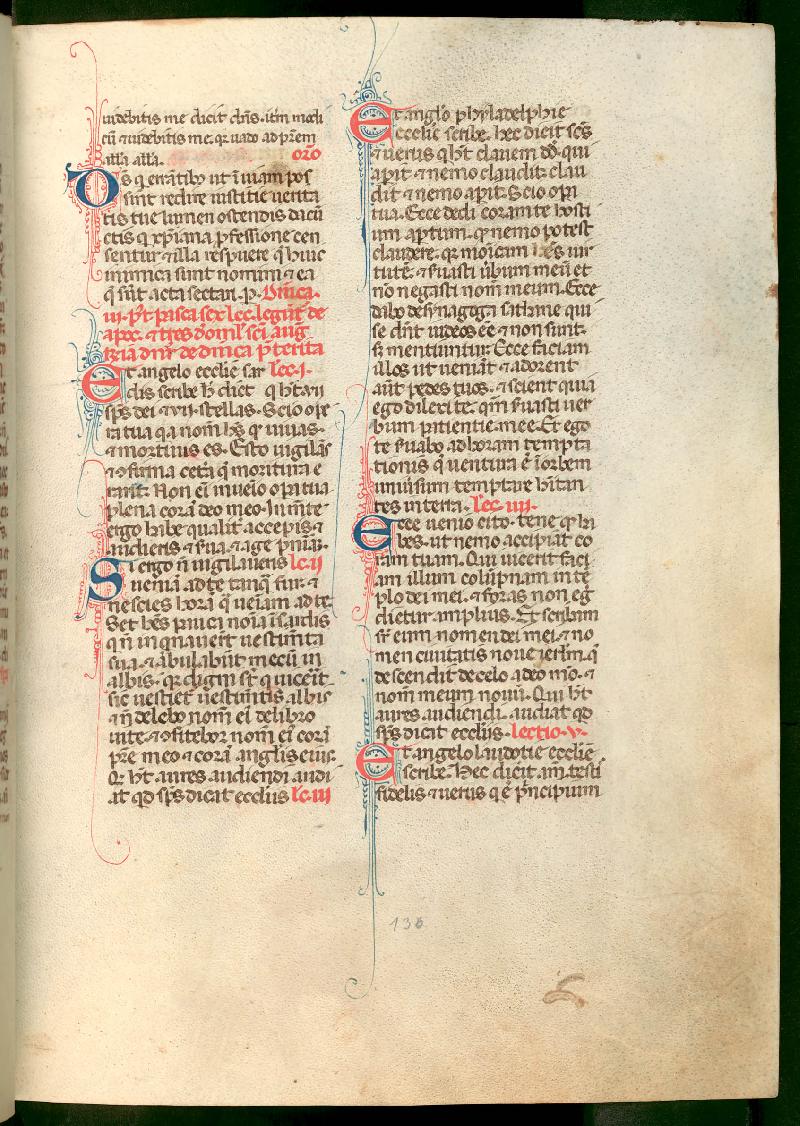 uidebitis me dicit dn̄s. itm̄ modi
cū ⁊ uidebitis me. qr uado ad pr̄em
alla alla. oro
Ds q errātibꝰ ut ī uiam pos
sint redire iustitie uerita
tis tue lumen ostendis da cū
ctis q xp̄iana ꝓfessione cen
sentur ⁊ illa respuere q̄ huic
inimica sunt nomini ⁊ ea
q̄ sūt acta sectari. p. Dn̄ica.
iii. pꝰt pasca sex lec. legūt̄ de
apoc. ⁊ tres d̓ om̄l. sc̄i aug
de dn̄ica p̄terita
Et angelo ecclīe sar lec. i.
dis scribe h̄ dicit q h̄t vii
sp̄s dei ⁊ vii. stellas. Scio ope
ra tua q̄a nom̄ h̄es qr uiuas.
⁊ mortuus es. Esto uigilās
⁊ ↄfirma cet̄a q̄ moritura e
rant. Non ēi inueīo oꝑa tua
plena corā deo meo. In mīte
ergo habe qualit̄ acceꝑis ⁊
audieris ⁊ s̓ua. ⁊ age pn̄iaꝫ.
Si ergo n̄ uigilaueris lc. ii
ueniā ad te tanq̄ fur. ⁊
nescies horā q̄ ueīam ad te
Set h̄es pauca noīa ī sardis
q n̄ inquinauer̄t uestim̄ta
sua. ⁊ ābulabūt mecū in
albis. qr digni st̄. q uic̄eit.
sic uestiet̄ uestim̄tis albis
⁊ n̄ delebo nom̄ ei̓ de libro
uite. ⁊ ↄfitebor nom̄ ei̓ corā
pr̄e meo ⁊ corā angl̓is eius.
Qi h̄t aures audiendi audi
at qd̓ sp̄s dicat ecclīis lc. iii
Et angl̓o phyladelphie
ecclīe scribe. hec dicit sc̄s
⁊ uerus q h̄t clauem dd̓. qui
aꝑit ⁊ nemo claudit. clau
dit ⁊ nemo aꝑit. Scio oꝑa
tua. Ecce dedi coram te hosti
um aꝑtum. qr nemo potest
claudere. qr modicam h̄es uir
tutē. ⁊ s̓uasti ūbum meū et
nō negasti nom̄ meum. Ecce
dabo de synagoga sathane qui
se dn̄t iudeos eē ⁊ non sunt.
s̓ mentiuntur. Ecce faciam
illos ut ueniāt ⁊ adorent
aūt pedes tuos. ⁊ scient quia
ego dilexi te. qm̄ s̓uasti uer
bum patientie mee. Et ego
te s̓uabo ad horam tempta
tionis q̄ uentura ē ī orbem
uniūsum temptare h̄itan
tes in terra. lec. iiii.
Ecce uenio cito. tene qr ha
bes. ut nemo accipiat co
ronam tuam. Qui uicerit faci
am illum colūpnam in tē
plo dei mei. ⁊ foras non eg
dietur amplius. Et scribam
sr̄ eum nomen dei mei. ⁊ no
men ciuitatis noue ier̄lm. q̄
descendit de celo a deo m̄o. ⁊
nom̄ meum nouū. Qui h̄t
aures audiendi. audiat qd̓
sp̄s dicat ecclīis. lectio. v.
Et angelo laudotie ecclīe
scribe. Hec dicit am̄. testis
fidelis ⁊ uerus q ē p̄ncipium
136